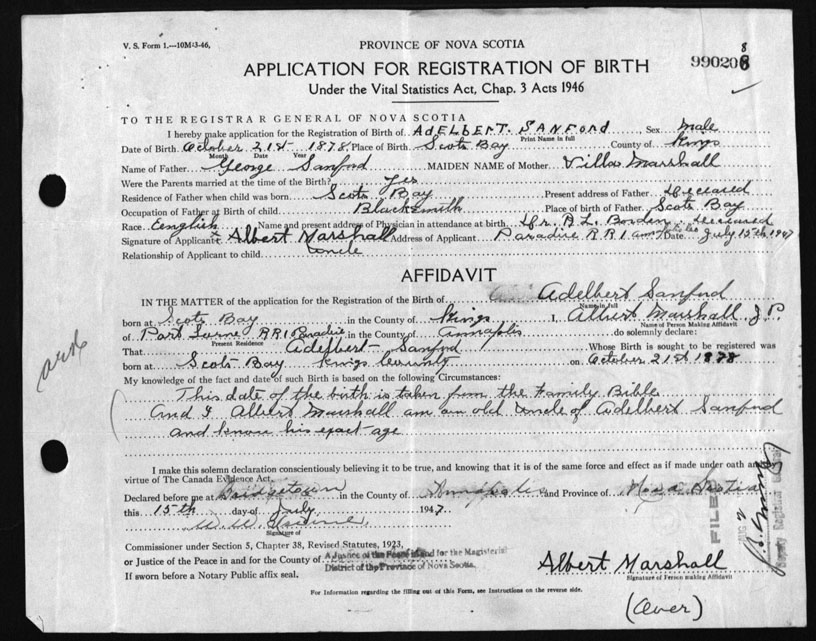 V. S. Form 1.—10M-13-46.
PROVINCE OF NOVA SCOTIA
8
990206
APPLICATION FOR REGISTRATION OF BIRTH
Under the Vital Statistics Act, Chap. 3 Acts 1946
TO THE REGISTRAR GENERAL OF NOVA SCOTIA
I hereby make application for the Registration of Birth of ADELBERT. SANFORD, Sex Male
Print Name in full
Date of Birth October 21st 1878, Place of Birth Scots Bay County of Kings
Month Date Year
Name of Father George Sanford MAIDEN NAME of Mother Villa Marshall
Were the Parents married at the time of the Birth? Yes
Residence of Father when child was born Scots Bay Present address of Father Deceased
Occupation of Father at Birth of child Blacksmith Place of birth of Father Scots Bay
Race Eenglish Name and present address of Physician in attendance at birth Dr. B L. Borden deceased
Signature of Applicant x Albert Marshall Address of Applicant Paradise RR1 Annapolis Date July 15th 1947
Relationship of Applicant to child Uncle
AFFIDAVIT
IN THE MATTER of the application for the Registration of Birth of Adelbert Sanford
Name in full
born at Scots Bay in the County of Kings I, Albert Marshall J.P.
Name of Person Making Affidavit
of Port Lorne RR1 Paradise in the County of Annapolis do solemnly declare:
Present Residence
That Adelbert Sanford Whose Birth is sought to be registered was
born at Scots Bay Kings County on October 21st 1878
My knowledge of the fact and date of such Birth is based on the following Circumstances:
This date of the birth is taken from the Family Bible
And I Albert Marshall am an old Uncle of Adelbert Sanford
and know his exact age
I make this solemn declaration conscientiously believing it to be true, and knowing that it is of the same force and effect as if made under oath and by
virtue of The Canada Evidence Act.
Declared before me at Bridgetown in the County of Annapolis and Province of Nova Scotia
this 15th day of July 1947.
Signature of
Commissioner under Section 5, Chapter 38, Revised Statutes, 1923,
or Justice of the Peace in and for the County of A Justice of the Peace in and for the Magisterial
District of the Province of Nova Scotia.
If sworn before a Notary Public affix seal.
Albert Marshall
Signature of Person making Affidavit
For Information regarding the filling out of this Form, see Instructions on the reverse side.
(Over)
FILED
Deputy Registrar General